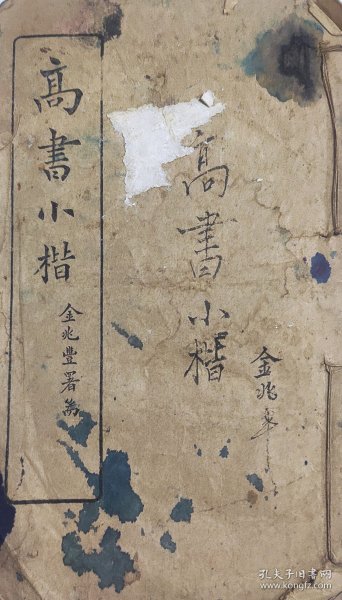 高書小楷
金兆豐署
高書小楷
金兆
孔夫子旧书网
www.kongfz.com